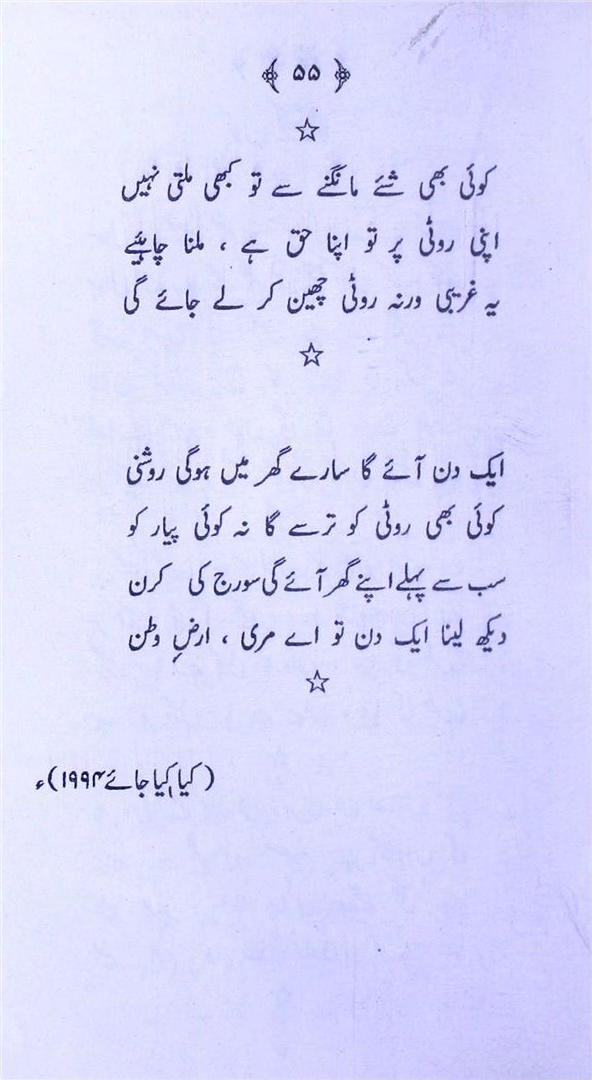 ﴿ ۵۵ ﴾
☆
کوئی بھی شئے مانگنے سے تو کبھی ملتی نہیں
اپنی روٹی پر تو اپنا حق ہے ، ملنا چاہیئے
یہ غریبی ورنہ روٹی چھین کر لے جائے گی
☆
ایک دن آئے گا سارے گھر میں ہوگی روشنی
کوئی بھی روٹی کو ترسے گا نہ کوئی پیار کو
سب سے پہلے اپنے گھر آئے گی سورج کی کرن
دیکھ لینا ایک دن تو اے مری ، ارضِ وطن
☆
(کیا کیا جائے ۱۹۹۴)ء